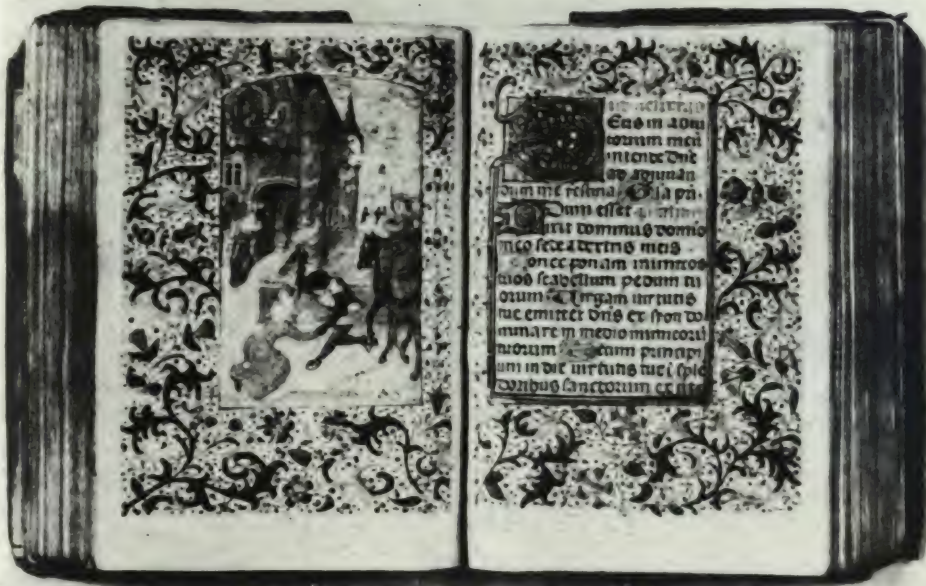 Eus in adiu
torium meu
intende Dñe
ad adiuuan
dum me festina Gla pri
Dum esset
Dixit dominus domino
meo sede a dextris meis
Donec ponam inimicos
tuos scabellum pedum tu
orum Uirgam uirtutis
tue emittet dñs ex syon do
minare in medio inimicoru
tuorum Tecum principi
um in die uirtutis tue i sple
doribus sanctorum ex ute